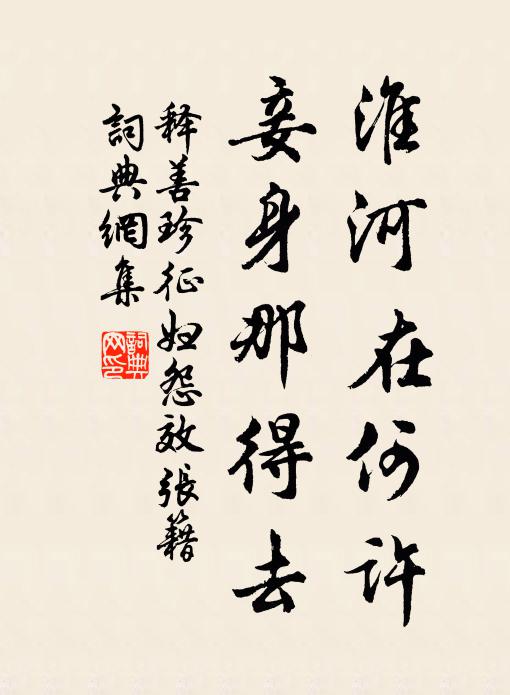 淮河在何许
妾身那得去
释善珍征妇怨效張籍
詞典網集
詞典网印